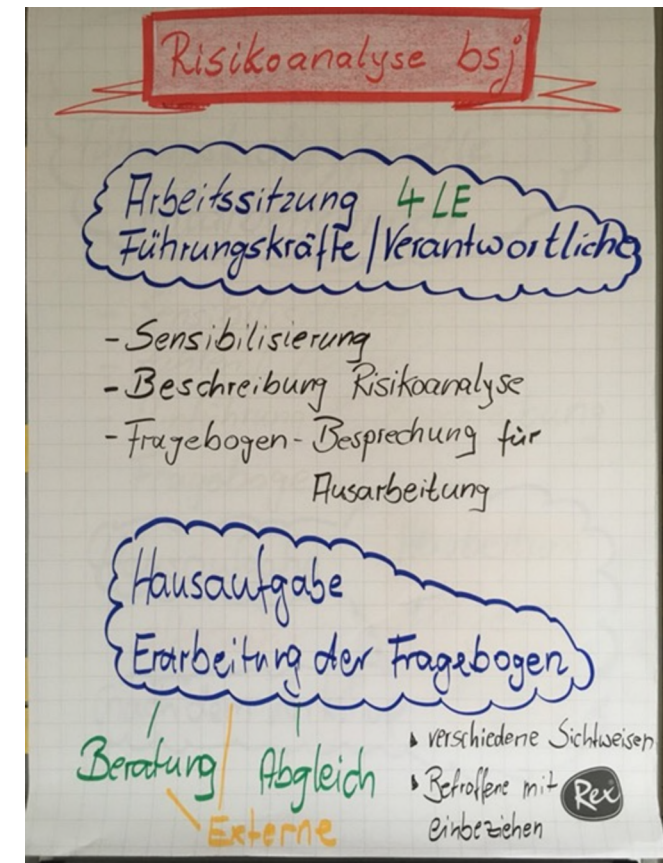 Risikoanalyse bsj
Arbeitssitzung 4 LE
Führungskräfte/Verantwortliche
- Sensibilisierung
- Beschreibung Risikoanalyse
- Fragebogen-Besprechung für
Ausarbeitung
Hausaufgabe
Erarbeitung der Fragebogen
Beratung Abgleich
Externe
verschiedene Sichtweisen
Betroffene mit
einbeziehen
Rex